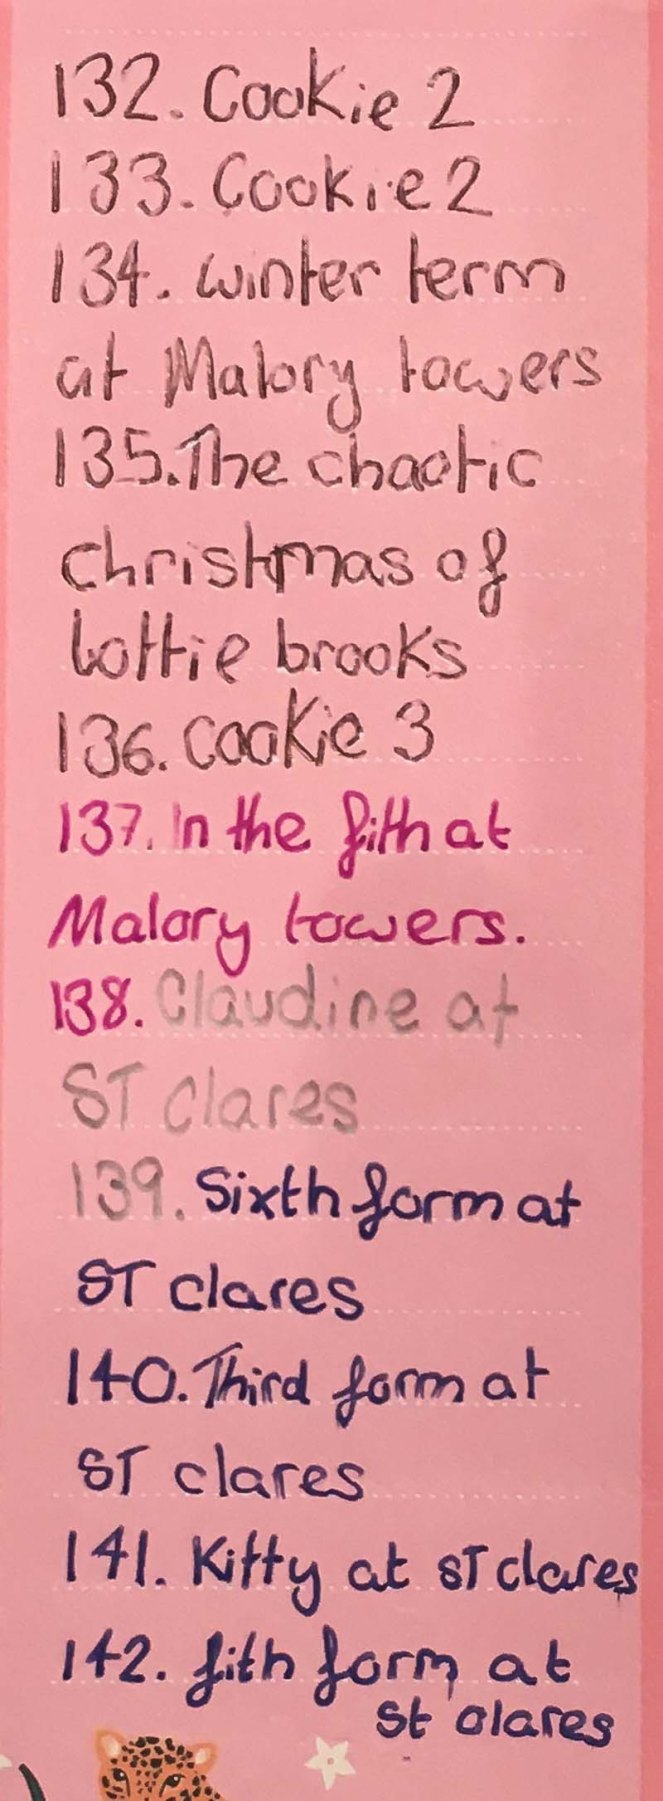 132. Cookie 2
133. Cookie 2
134. winter term
at Malory towers
135. The chaotic
christmas of
lottie brooks
136. Cookie 3
137. In the fith at
Malory towers.
138. Claudine at
ST clares
139. Sixth form at
ST clares
140. Third form at
ST clares
141. Kitty at ST clares
142. fith form at
St clares